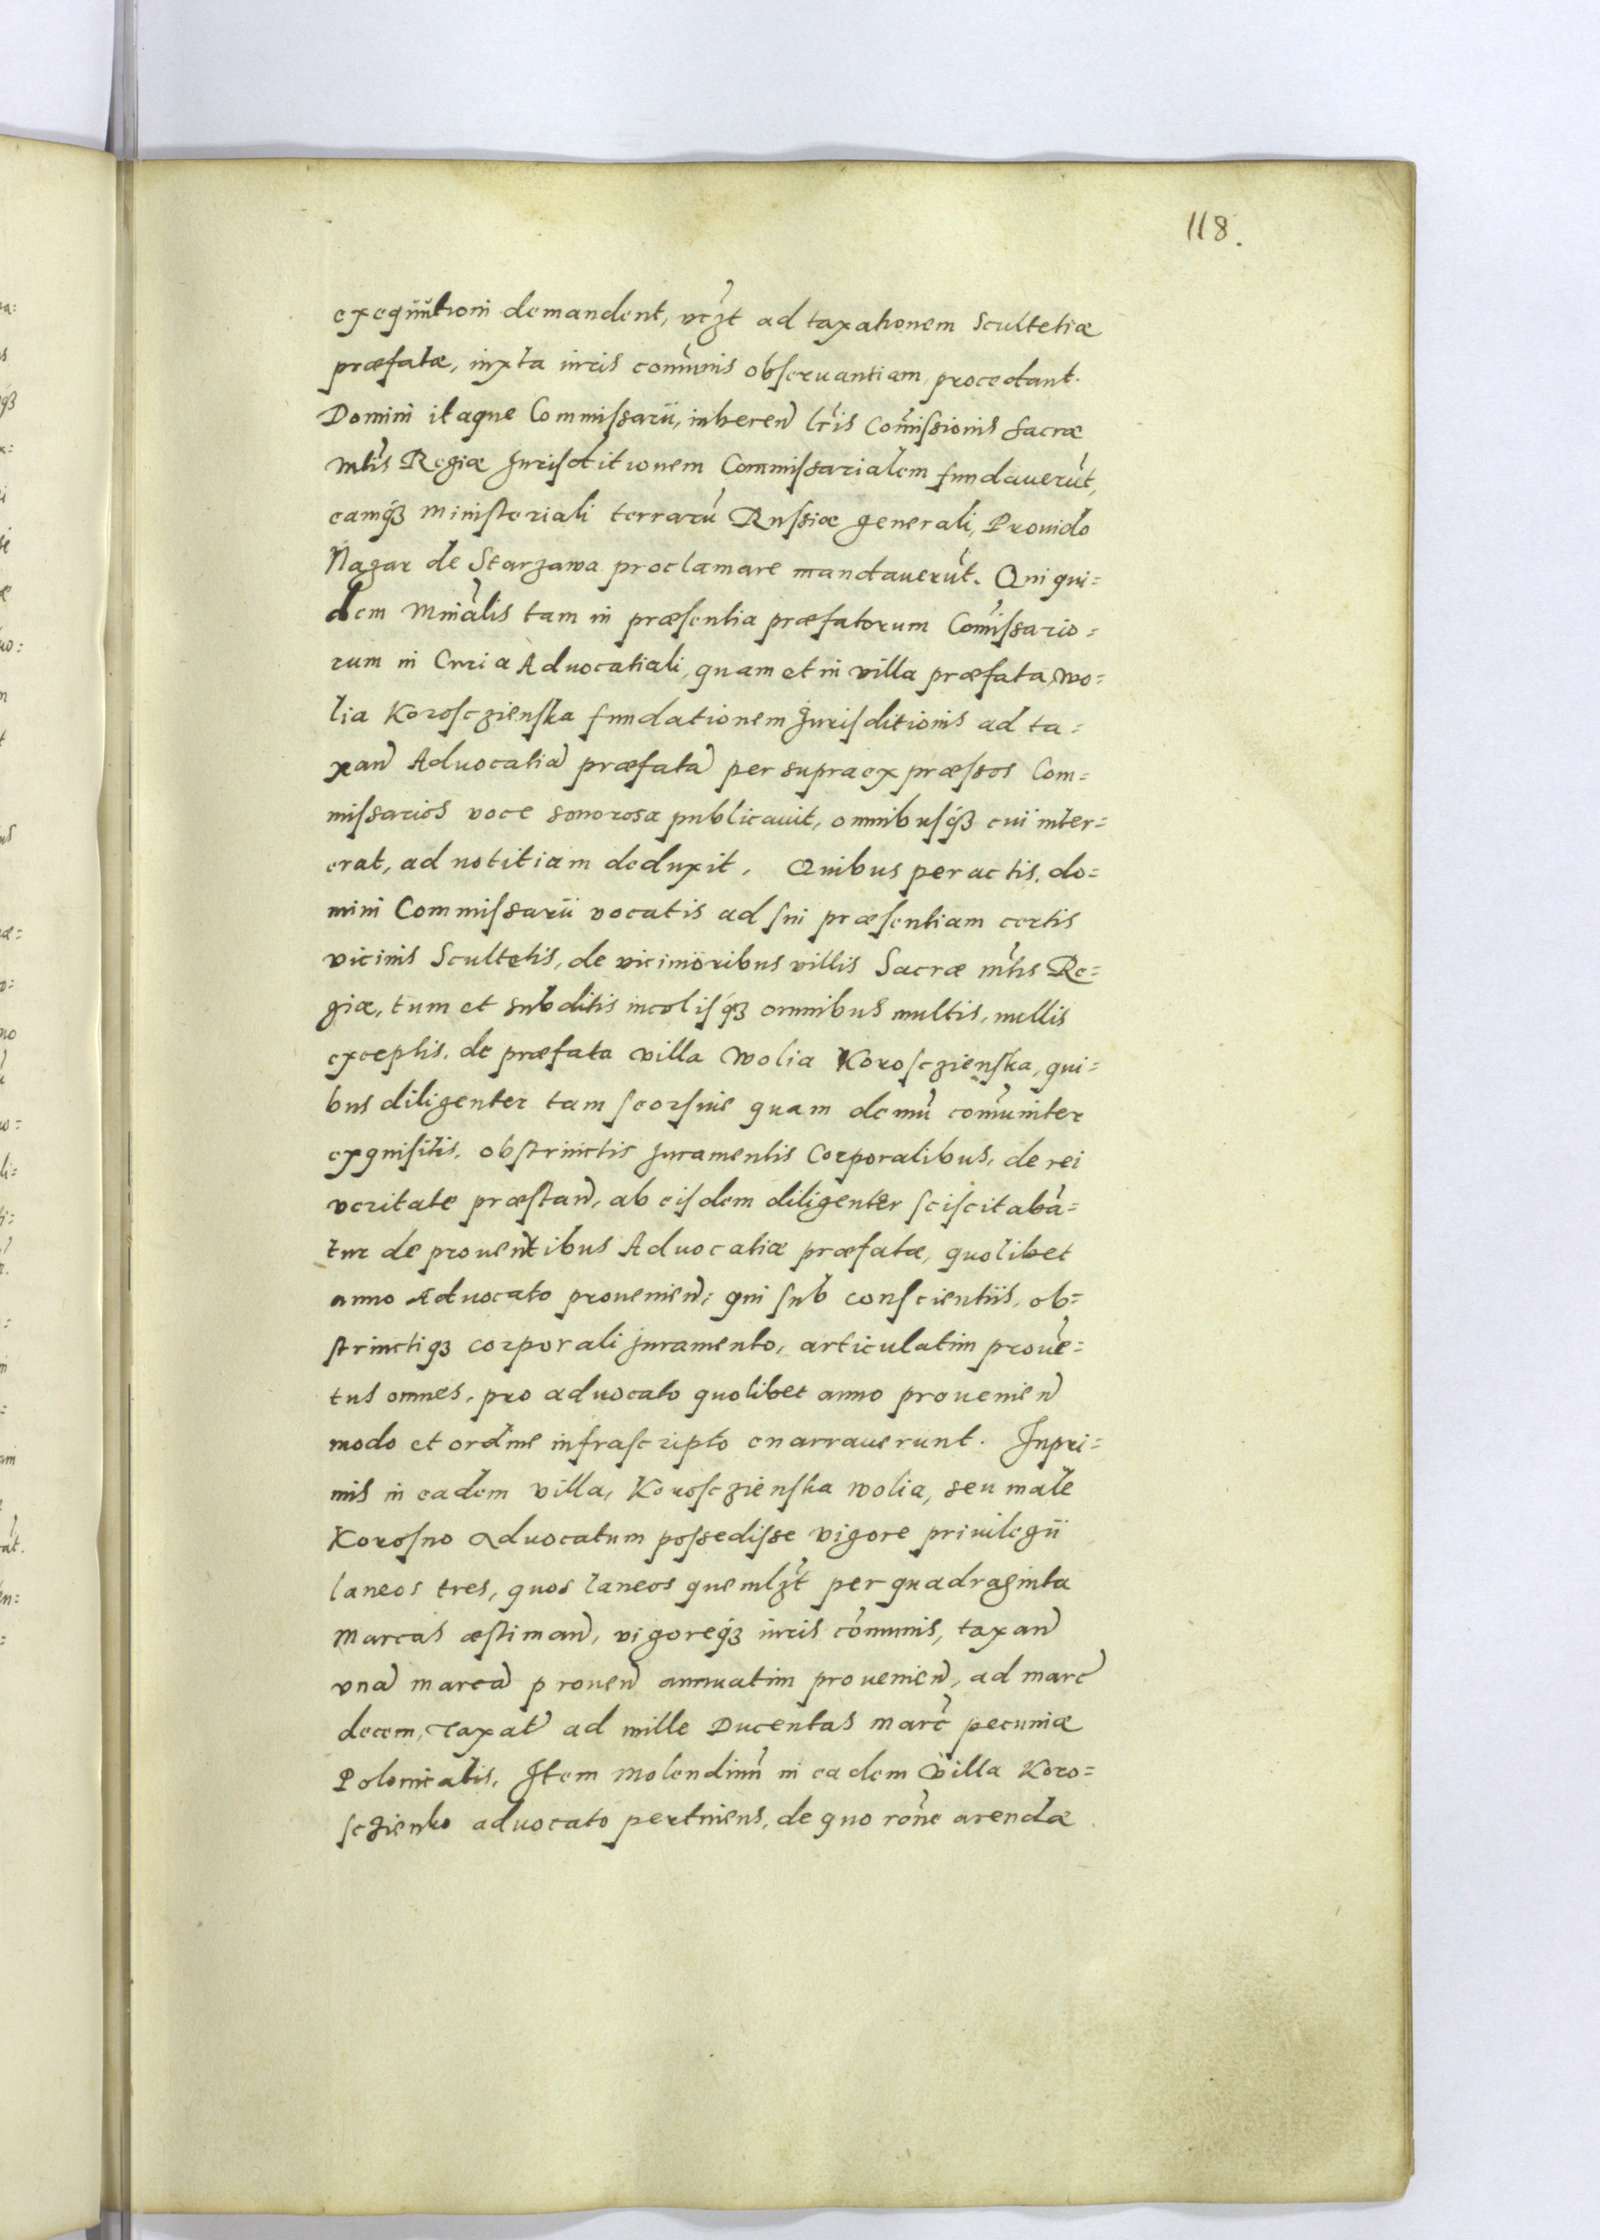 118.
exequutioni demandent, vczt ad taxationem Scultetiæ
præfatæ, iuxta iuris com̃unis obseruantiam, procedant.
Domini itaque Commissarii, inheren̄ lr̄is Com̃issionis Sacræ
Mt̄is Regiæ Jurisdictionem Commissarialem fundauerūt,
eamqȝ ministeriali terrarū Russiæ generali, Prouido
Nazar de Starzawa proclamare mandauerūt. Qui qui=
dem Minālis tam in præsentia præfatorum Com̃issario=
rum in Curia Aduocatiali, quam et in villa præfata, Wo=
lia Korosczienska fundationem Jurisditionis ad ta=
xan̄ Aduocatiā præfatā per supraexpræssos Com=
missarios voce sonorosa publicauit, omnibusqȝ cui inter=
erat, ad notitiam deduxit. Quibus peractis, do=
mini Commissarii vocatis ad sui præsentiam certis
vicinis Scultetis, de viciniöribus villis Sacræ mt̄is Re=
giæ, tum et subditis incolisqȝ omnibus multis, nullis
exceptis, de præfata villa Wolia Korosczienska, qui=
bus diligenter tam seorsive quam demū com̃uniter
exquisitis, obstrinctis Juramentis Corporalibus, de rei
veritate præstan̄, ab eisdem diligenter sciscitabā=
tur de prouentibus Aduocatiæ præfatæ, quolibet
anno Aduocato prouenien̄; qui sub conscientiis, ob=
strinctiqȝ corporali juramento, articulatim prouē=
tus omnes, pro aduocato quolibet anno prouenien̄
modo et ordine infrascripto enarrauerunt. Inpri=
mis in eadem villa, Korosczienska Wolia, seu male
Korosno aduocatum possedisse vigore priuilegii
laneos tres, quos laneos quemlzt per quadraginta
Marcas æstiman̄, vigoreqȝ iuris cōmunis, taxan̄
vnā marcā prouen̄ annuatim prouenien̄, ad marc̄
decem, Taxat̄ ad mille Ducentas marc̄ pecuniæ
Polonicalis. Item Molendinū in eadem Villa Koro=
sczienko aduocato pertinens, de quo rōne arendæ